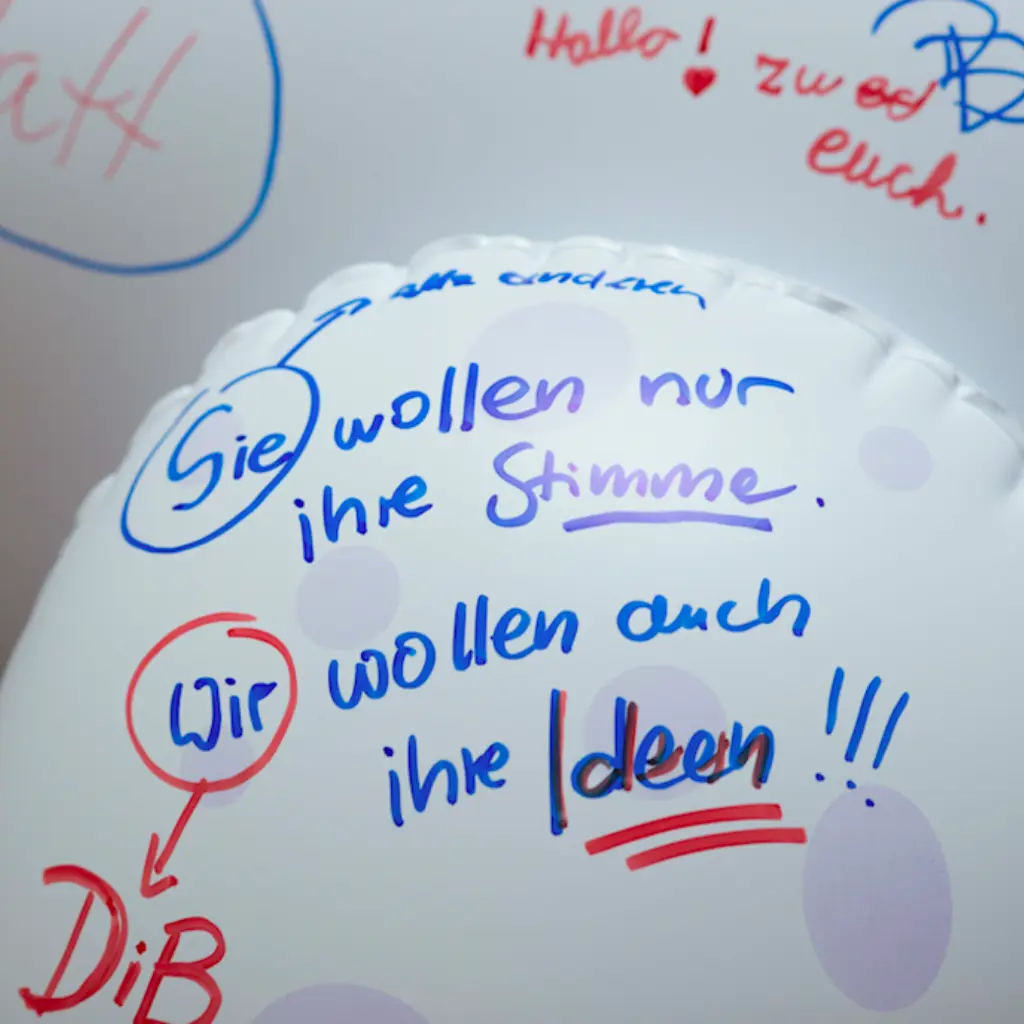 Hallo!
euch.
alle anderen
Sie wollen nur
ihre Stimme.
Wir wollen auch
ihre Ideen !!!
DiB